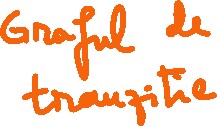 Graful de
tranziție